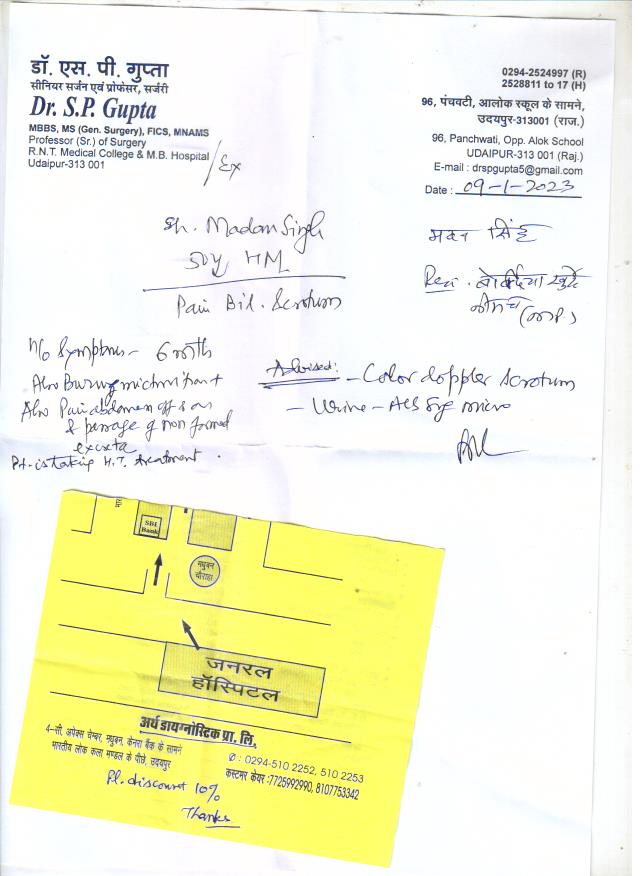 डॉ. एस. पी. गुप्ता
सीनियर सर्जन एवं प्रोफेसर, सर्जरी
Dr. S.P. Gupta
MBBS, MS (Gen. Surgery), FICS, MNAMS
Professor (Sr.) of Surgery
R.N.T. Medical College & M.B. Hospital
Udaipur-313 001
/Ex
0294-2524997 (R)
2528811 to 17 (H)
96, पंचवटी, आलोक स्कूल के सामने,
उदयपुर-313001 (राज.)
96, Panchwati, Opp. Alok School
UDAIPUR-313 001 (Raj.)
E-mail : drspgupta5@gmail.com
Date : 09-1-2023
Sh. Madan Singh
50y HM
Pain Bil. Scrotum
मदन सिंह
नीमच
(MP.)
H/o Symptoms - 6 month
Also Burning micturition +
Also Pain abdomen off & on
& passage of non formed
excreta
Pt. is taking H.T. treatment.
Advised:
- Color doppler Scrotum
- Urine - Alb Sug micro
SBI
Bank
मधुबन
चौराहा
जनरल
हॉस्पिटल
अर्थ डायग्नोस्टिक प्रा. लि.
4-सी, अपेक्स चेम्बर, मधुबन, केनरा बैंक के सामने
भारतीय लोक कला मण्डल के पीछे, उदयपुर
✆ : 0294-510 2252, 510 2253
कस्टमर केयर :7725992990, 8107753342
Pl. discount 10%
Thanks